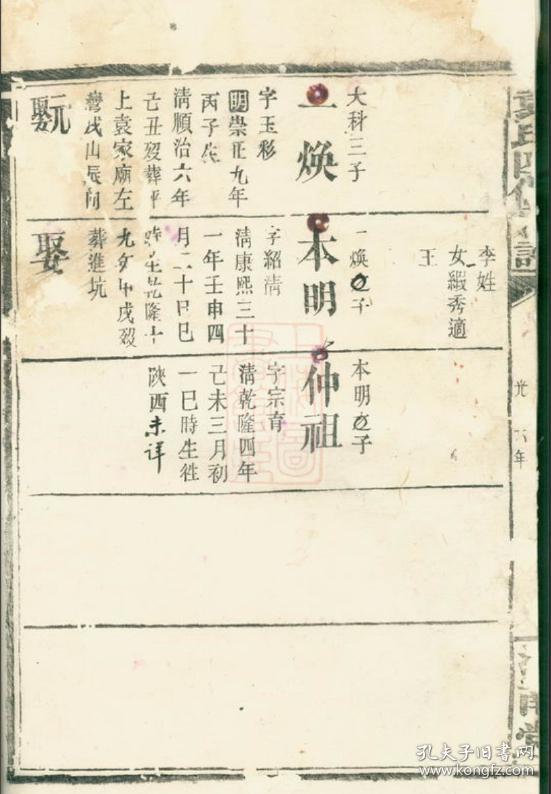 李姓
女緞秀適
王
大科三子
一煥
字玉彩
明崇正九年
丙子生
清順治六年
己丑歿葬平
上袁家廟左
灣戌山辰向
元
娶
一煥之子
本明
字紹清
清康熙三十
一年壬申四
月二十日巳
時生乾隆十
九年甲戌歿
葬進坑
娶
本明之子
仲祖
字宗育
清乾隆四年
己未三月初
一巳時生徃
陝西未详
光 六年
孔夫子旧书网
www.kongfz.com